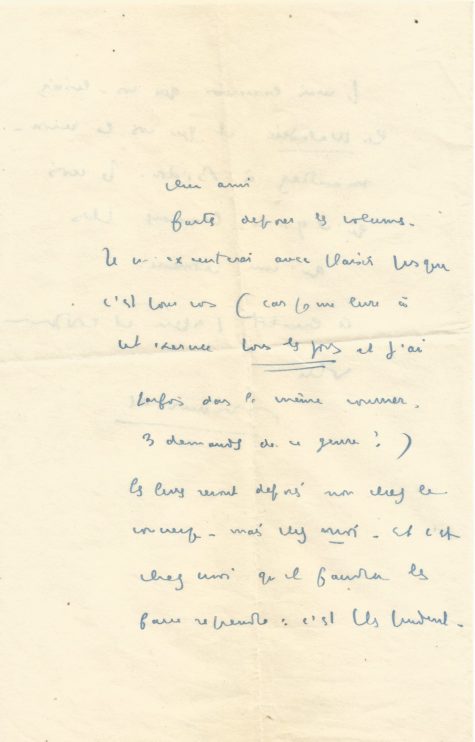 cher ami
faites déposer les volumes.
Je m'exécuterai avec plaisir puisque
c'est pour vos (car je me livre à
cet exercice tous les jours et j'ai
parfois dans le même courrier,
3 demandes de ce genre !)
les livres seront déposés non chez le
concierge - mais chez moi - et c'est
chez moi qu'il faudra les
faire reprendre : c'est plus prudent.